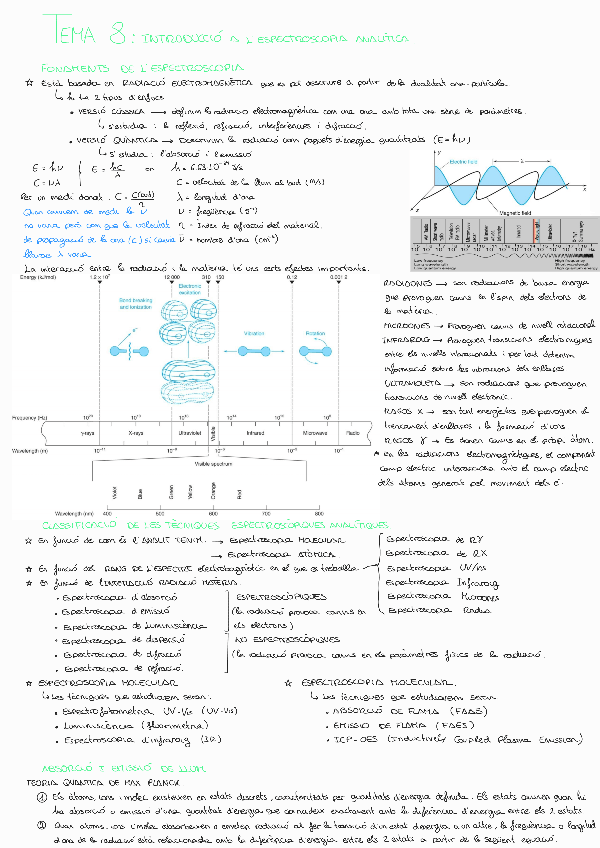 TEMA 8: INTRODUCCIÓ A L'ESPECTROSCOPIA ANALÍTICA
FONAMENTS DE L'ESPECTROSCOPIA
☆ Està basada en RADIACIÓ ELECTROMAGNÈTICA que es pot descriure a partir de la dualitat ona-partícula.
↳ hi ha 2 tipus d'enfocs
• VERSIÓ CLÀSSICA → definim la radiació electromagnètica com una ona amb tota una sèrie de paràmetres.
↳ s'estudia: la reflexió, refracció, interferències i difracció.
• VERSIÓ QUÀNTICA → Descrivim la radiació com paquets d'energia quantitzats (E=hν)
↳ s'estudia: l'absorció i l'emissió
E = hν E = hc/λ on h = 6.63·10⁻³⁴ J·s
C = νλ C = velocitat de la llum al buit (m/s)
Per un medi donat: C = C(buit)/η λ = longitud d'ona
Quan canviem de medi la ν ν = freqüència (s⁻¹)
no varia, però com que la velocitat η = Índex de refracció del material.
de propagació de la ona (c) si canvia ν = nombre d'ona (cm⁻¹)
llavors λ varia.
La interacció entre la radiació i la matèria té uns certs efectes importants.
y
Electric field
λ
z
x
Magnetic field
Energy (kJ/mol) 1.2 x 10⁷ 12 000 310 150 0.12 0.001 2
Electronic excitation
Bond breaking and ionization
e⁻
Vibration
Rotation
Frequency (Hz)
γ-rays X-rays Ultraviolet Visible Infrared Microwave Radio
Wavelength (m)
Visible spectrum
Violet Blue Green Yellow Orange Red
Wavelength (nm) 400 500 600 700 800
RADIOONES → són radiacions de baixa energia
que provoquen canvis en l'spin dels electrons de
la matèria.
MICROONES → Provoquen canvis de nivell rotacional
INFRAROIG → Provoquen transicions electròniques
entre els nivells vibracionals i per tant obtenim
informació sobre les vibracions dels enllaços
ULTRAVIOLETA → són radiacions que provoquen
transicions de nivell electrònic.
RAGOS X → són tant energètics que provoquen el
trencament d'enllaços i la formació d'ions
RAGOS γ → Es donen canvis en el propi àtom.
* en les radiacions electromagnètiques, el component
camp elèctric interacciona amb el camp elèctric
dels àtoms generat pel moviment dels e⁻.
CLASSIFICACIÓ DE LES TÈCNIQUES ESPECTROSCÒPIQUES ANALÍTIQUES
☆ En funció de com és l'ANALIT TENIM. → Espectroscopia MOLECULAR
→ Espectroscopia ATÒMICA.
☆ En funció del RANG DE L'ESPECTRE electromagnètic en el que es treballa
Espectroscopia de RY
Espectroscopia de RX
Espectroscopia UV/vis
Espectroscopia Infraroig
Espectroscopia Microones
Espectroscopia Radio
☆ En funció de l'INTERACCIÓ RADIACIÓ MATÈRIA.
• Espectroscopia d'absorció
• Espectroscopia d'emissió
• Espectroscopia de luminiscència
• Espectroscopia de dispersió
• Espectroscopia de difracció
• Espectroscopia de refracció.
ESPECTROSCÒPIQUES
(la radiació provoca canvis en
els electrons)
NO ESPECTROSCÒPIQUES
(la radiació provoca canvis en els paràmetres físics de la radiació.
☆ ESPECTROSCOPIA MOLECULAR
↳ Les tècniques que estudiarem seran:
• Espectrofotometria UV-Vis (UV-Vis)
• Luminiscència (fluorimetria)
• Espectroscopia d'infraroig (IR)
☆ ESPECTROSCOPIA MOLECULAR.
↳ Les tècniques que estudiarem seran
• ABSORCIÓ DE FLAMA (FAAS)
• EMISSIÓ DE FLAMA (FAES)
• ICP-OES (Inductively Coupled Plasma Emission)
ABSORCIÓ I EMISSIÓ DE LLUM
TEORIA QUÀNTICA DE MAX PLANCK
① Els àtoms, ions i molec. existeixen en estats discrets, caracteritzats per quantitats d'energia definida. Els estats canvien quan hi
ha absorció o emissió d'una quantitat d'energia que coincideix exactament amb la diferència d'energia entre els 2 estats
② Quan àtoms, ions i molec absorbeixen o emeten radiació al fer la transició d'un estat d'energia a un altre, la freqüència o longitud
d'ona de la radiació està relacionada amb la diferència d'energia entre els 2 estats a partir de la següent equació.